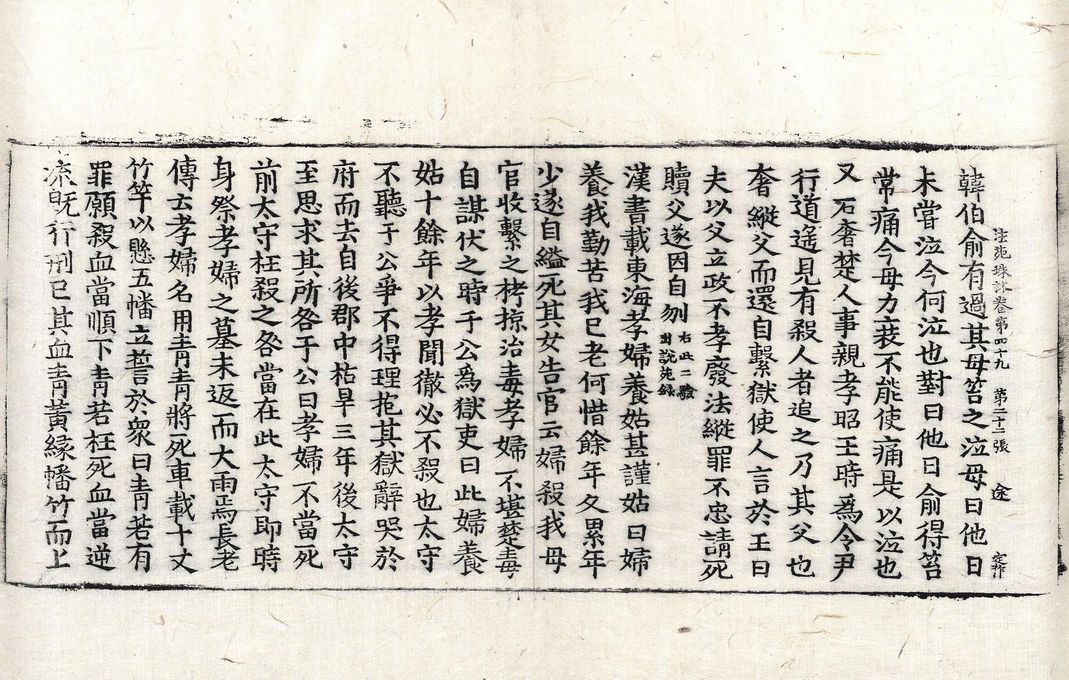 韓伯俞有過其母笞之泣母曰他日
法苑珠林卷第四十九 第二十二張 途
未嘗泣今何泣也對曰他日俞得笞
常痛今母力衰不能使痛是以泣也
又石奢楚人事親孝昭王時為令尹
行道遙見有殺人者追之乃其父也
奢縱父而還自繫獄使人言於王曰
夫以父立政不孝廢法縱罪不忠請死
贖父遂因自刎右此二驗出說苑錄
漢書載東海孝婦養姑甚謹姑曰婦
養我勤苦我已老何惜餘年久累年
少遂自縊死其女告官云婦殺我母
官收繫之拷掠治毒孝婦不堪楚毒
自謀伏之時于公為獄吏曰此婦養
姑十餘年以孝聞徹必不殺也太守
不聽于公爭不得理抱其獄辭哭於
府而去自後郡中枯旱三年後太守
至思求其所咎于公曰孝婦不當死
前太守枉殺之咎當在此太守即時
身祭孝婦之墓未返而大雨焉長老
傳云孝婦名用青青將死車載十丈
竹竿以懸五幡立誓於衆曰青若有
罪願殺血當順下青若枉死血當逆
流旣行刑已其血青黃緣幡竹而上